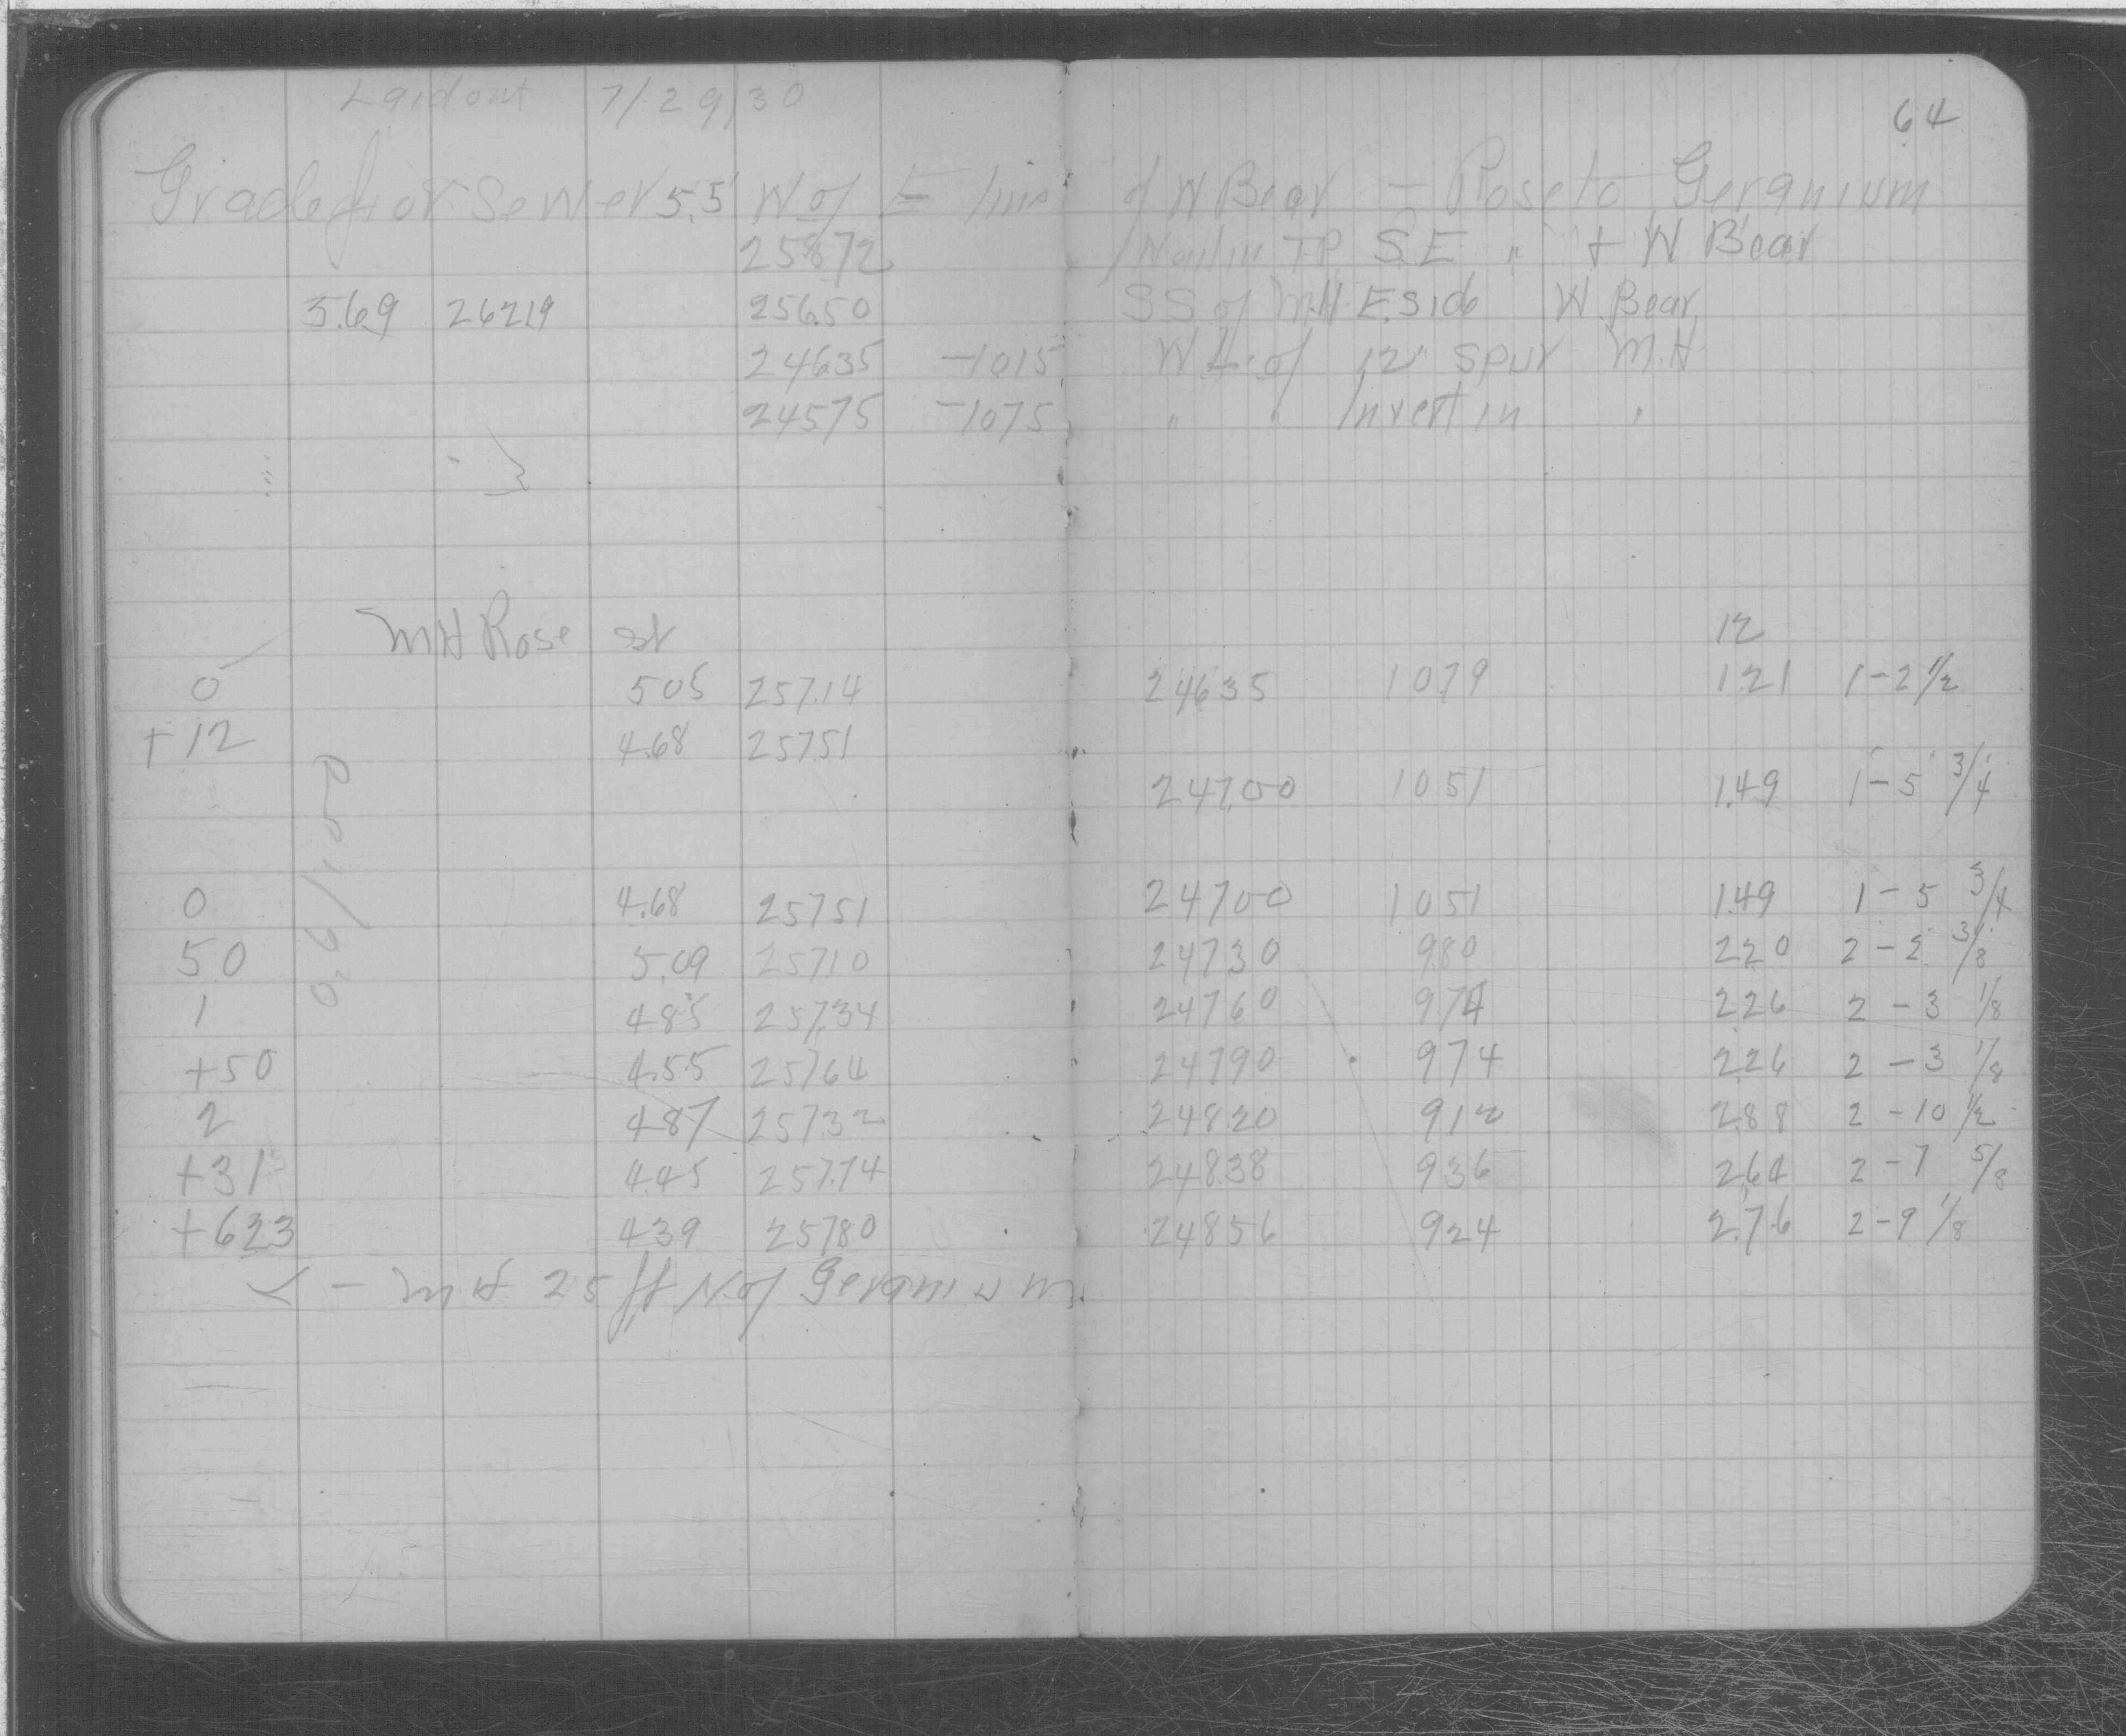 Laid out 7/29/30
64
Grade for Sewer 5.5' W of E line of W Bear - Rose to Geranium
258.72 Nail in TP S.E " + W Bear
3.69 262.19 256.50 SS of M.H E. Side W. Bear
246.35 -10.15 W.L. of 12" Spur M.H.
245.75 -10.75 " " Invert in "
MH Rose St 12
0 5.05 257.14 246.35 10.79 1.21 1-2 1/2
+12 4.68 257.51
247.00 10.51 1.49 1-5 3/4
0.6/100
0 4.68 257.51 247.00 10.51 1.49 1-5 3/4
50 5.09 257.10 247.30 9.80 2.20 2-2 3/8
1 4.85 257.34 247.60 9.74 2.26 2-3 1/8
+50 4.55 257.64 247.90 9.74 2.26 2-3 1/8
2 4.87 257.32 248.20 9.12 2.88 2-10 1/2
+31 4.45 257.74 248.38 9.36 2.64 2-7 5/8
+623 4.39 257.80 248.56 9.24 2.76 2-9 1/8
< - MH 25 ft N. of Geranium